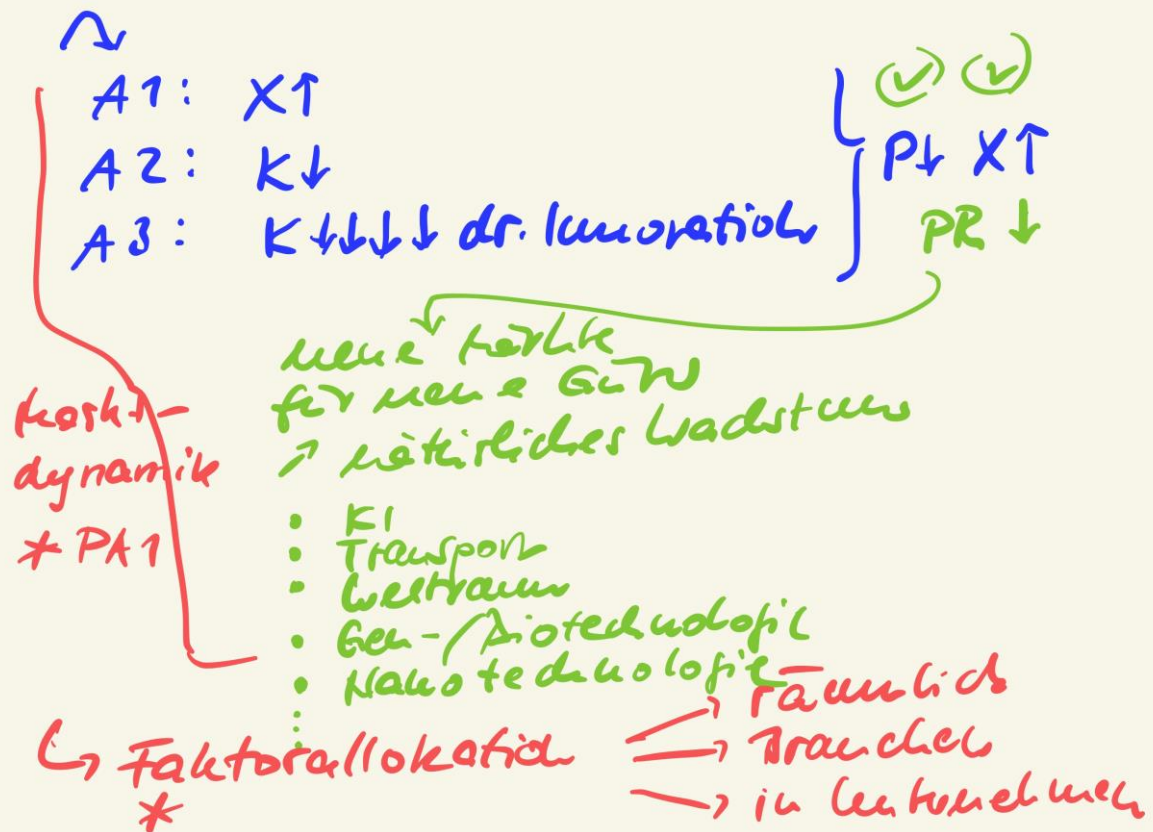 A1: X↑
A2: K↓
A3: K↓↓↓↓ dr. Innovation
(✓) (✓)
P↓ X↑
PR ↓
neue Märkte
für neue Güter
↗ natürliches Wachstum
• KI
• Transport
• Weltraum
• Gen-/Biotechnologie
• Nanotechnologie
Markt-
dynamik
* PA1
↳ Faktorallokation
*
→ räumlich
→ Branchen
→ in Unternehmen